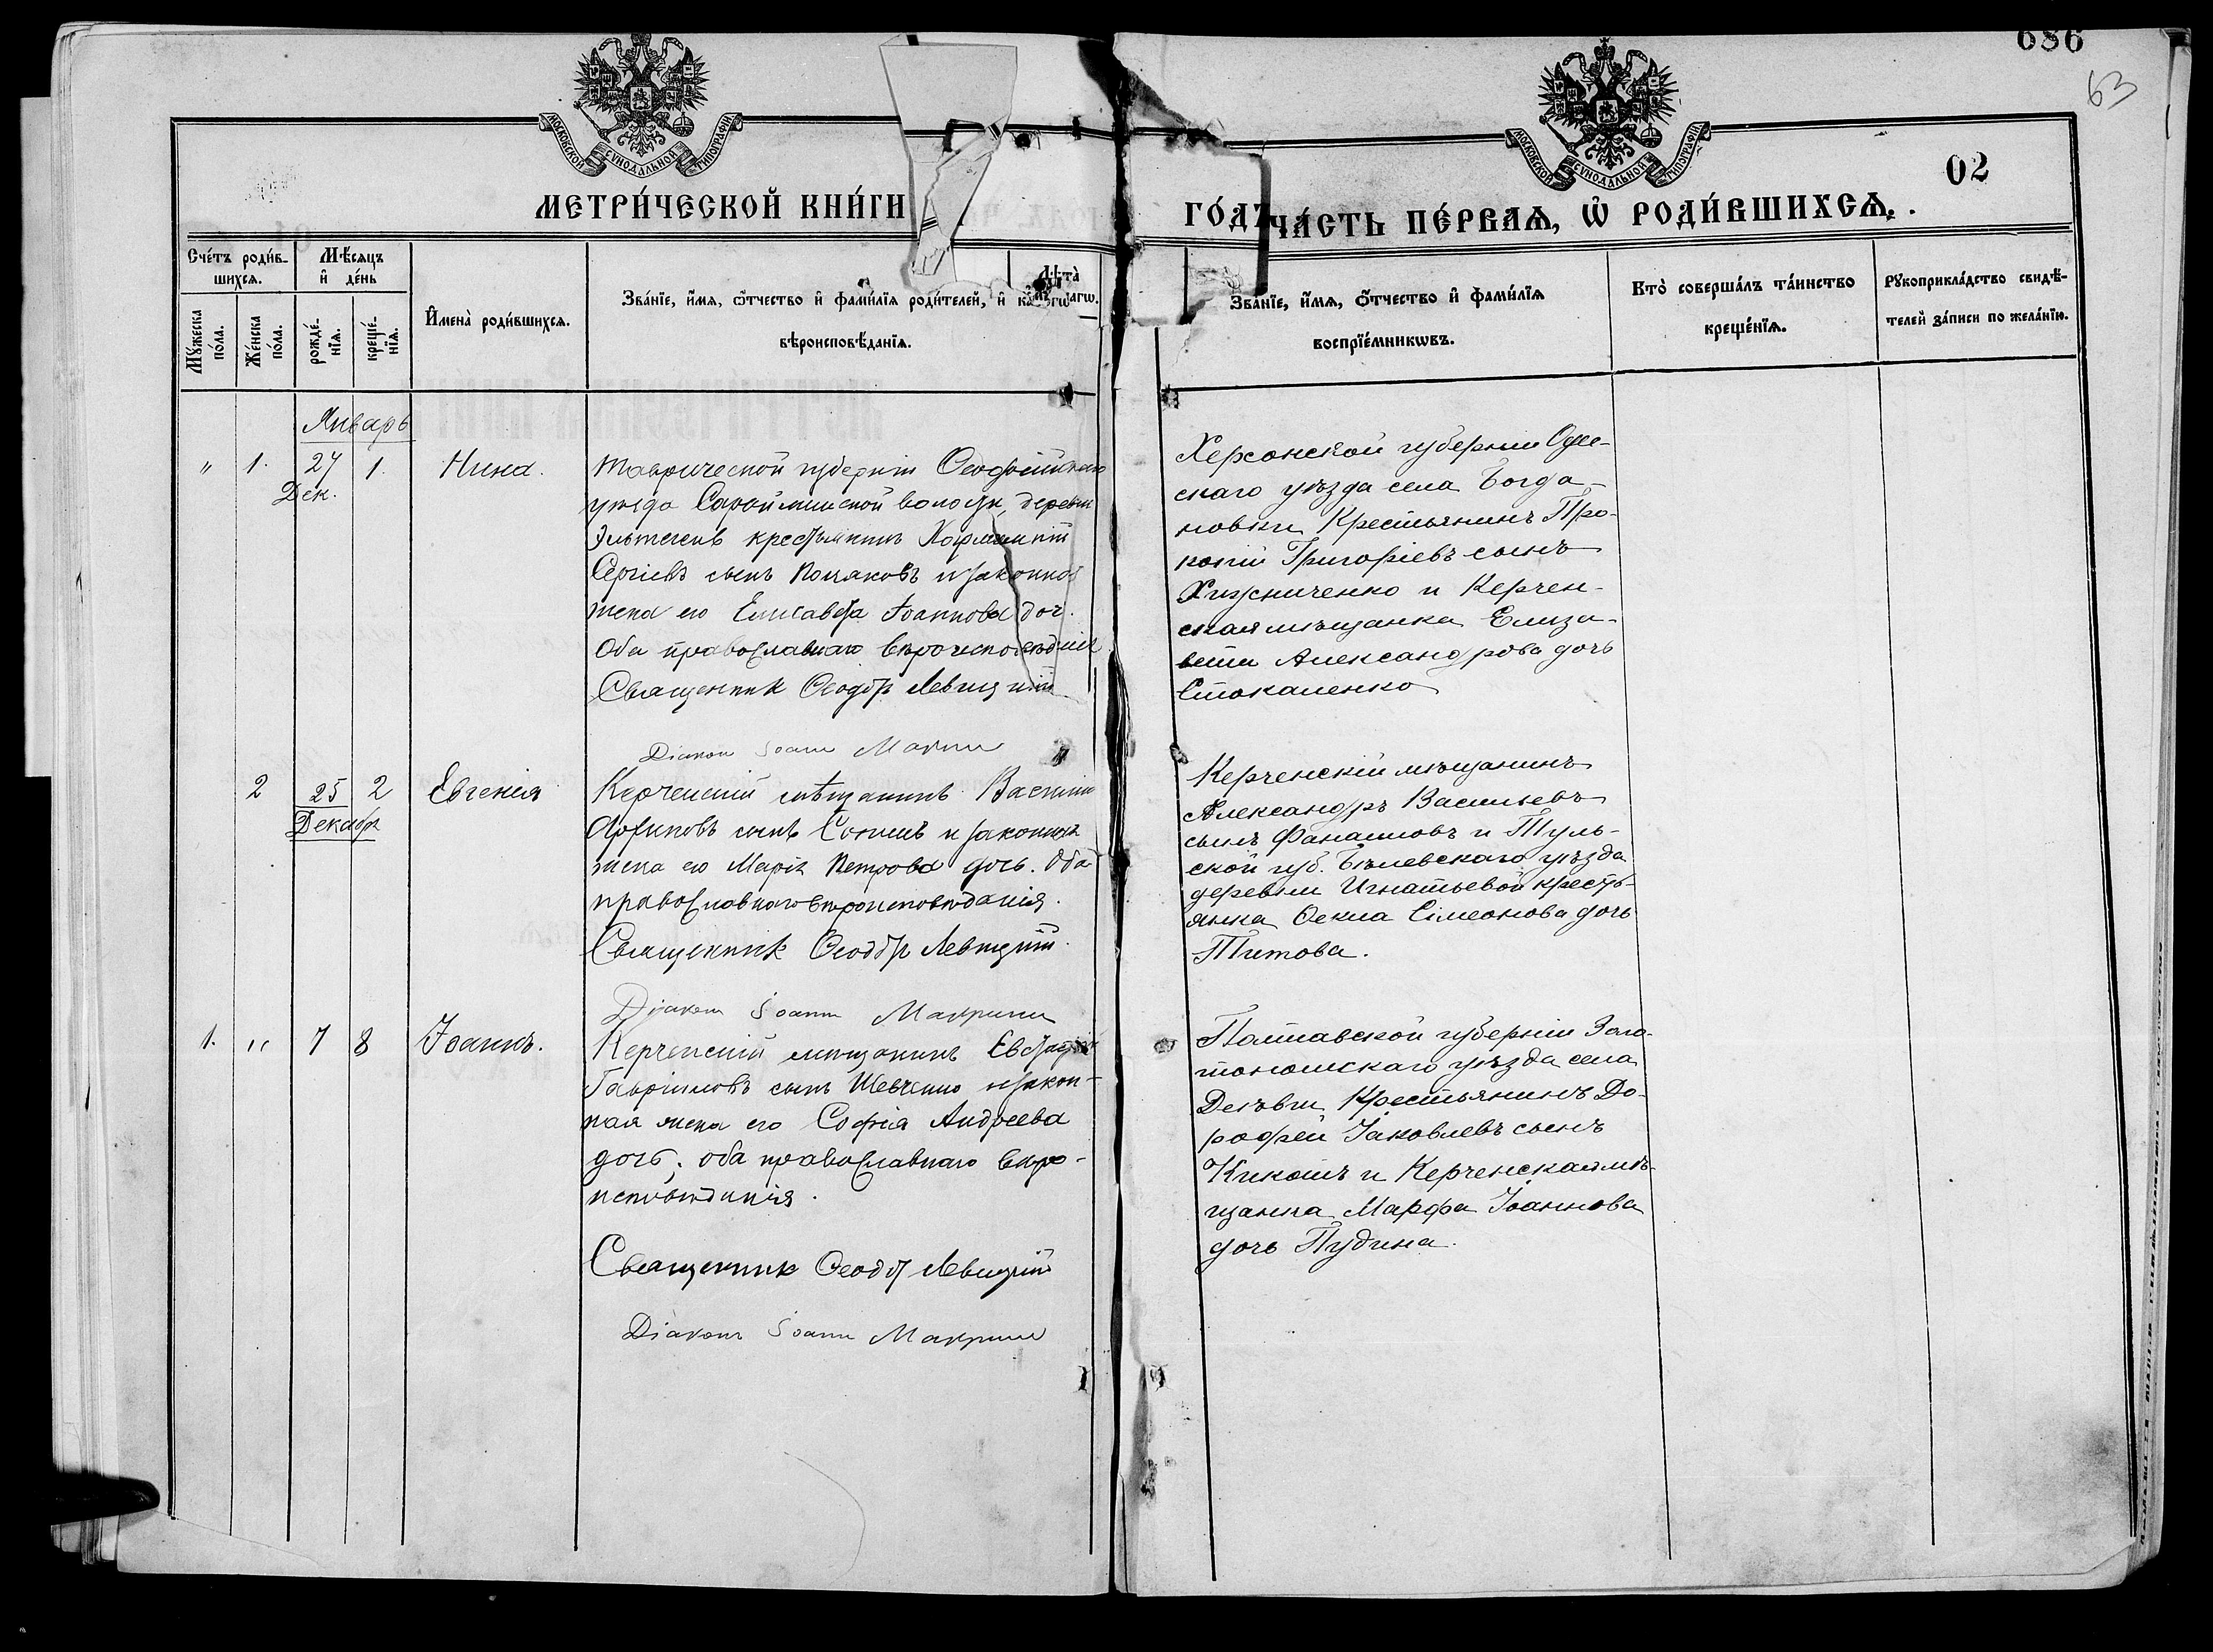 686
63
02
МОСКОВСКОЙ СѴНОДАЛЬНОЙ ТИПОГРАФІИ
МОСКОВСКОЙ СѴНОДАЛЬНОЙ ТИПОГРАФІИ
МЕТРИ́ЧЕСКОЙ КНИ́ГИ
ГО́ДЪ
ЧА́СТЬ ПЕ́РВАѦ, Ѡ҆ РОДИ́ВШИХСѦ.
Сче́тъ роди́в-
шихсѧ.
Мꙋ́жеска
по́ла.
Же́нска
по́ла.
Мѣ́сѧцъ
и҆ де́нь
рожде́-
нїѧ.
креще́-
нїѧ.
И҆мена̀ роди́вшихсѧ.
Зва́нїе, и҆́мѧ, ѻ҆́тчество и҆ фамѝлїѧ роди́телей, и҆
вѣроисповѣ́данїѧ.
Зва́нїе, и҆́мѧ, ѻ҆́тчество и҆ фами́лїѧ
воспрїе́мникѡвъ.
Кто̀ соверша́лъ та́инство
креще́нїѧ.
Рꙋкоприкла́дство свидѣ́-
телей за́писи по жела́нїю.
Январь
" 1. 27 1. Нина.
Дек.
Таврической губерніи Ѳеодосійскаго
уѣзда Сарайминской волости, деревни
Эльтегенъ крестьянинъ
Сергіевъ сынъ Поляковъ и законная
жена его Елисавета Іоаннова доч.
Оба православнаго вѣроисповѣданія
Священникъ Ѳеодоръ Левицкій
Діаконъ Іоаннъ Макрини
Херсонской губерніи Одес-
скаго уѣзда села Богда-
новки Крестьянинъ Про-
копій Григоріевъ сынъ
Хижниченко и Керчен-
ская мѣщанка Елиза-
вета Александрова дочь
Стокаленко
2 25 2 Евгенія
Декабря
Керченскій мѣщанинъ Василій
сынъ и законная
жена его Марія Петрова дочь. Оба
православнаго вѣроисповѣданія.
Священникъ Ѳеодоръ Левицкій.
Діаконъ Іоаннъ Макрини
Керченскій мѣщанинъ
Александръ Васильевъ
сынъ Фанаиловъ и Туль-
ской губ. Бѣлевскаго уѣзда
деревни Игнатьевой кресть-
янка Ѳекла Сімеонова дочь
Титова.
1. " 7 8 Іоаннъ.
Керченскій мѣщанинъ Евстафій
Гавріиловъ сынъ Шевченко и закон-
ная жена его Софія Андреева
дочь; оба православнаго вѣро-
исповѣданія.
Священникъ Ѳеодоръ Левицкій
Діаконъ Іоаннъ Макрини
Полтавской губерніи Золо-
тоношскаго уѣзда села
Деньги Крестьянинъ До-
рофей Іаковлевъ сынъ
Кикоть и Керченская мѣ-
щанка Марфа Іоаннова
дочь Пудина.